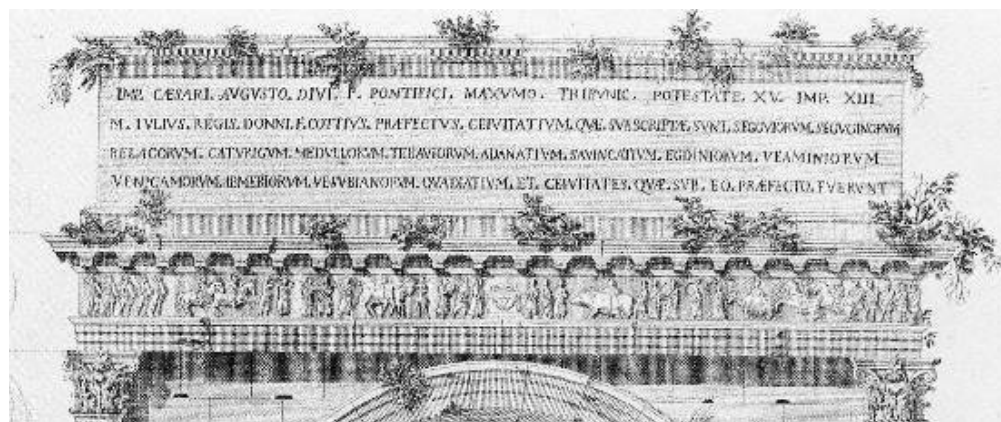 IMP. CÆSARI. AVGVSTO. DIVI. F. PONTIFICI. MAXVMO. TRIBVNIC. POTESTATE. XV. IMP. XIII
M. IVLIVS. REGIS. DONNI. F. COTTIVS. PRÆFECTVS. CEIVITATIVM. QVÆ. SVBSCRIPTÆ. SVNT. SEGOVIORVM. SEGVGINORVM
BELACORVM. CATVRIGVM. MEDVLLORVM. TEBAVIORVM. ADANATIVM. SAVINCATIVM. EGDINIORVM. VEAMINIORVM
VENICAMORVM. IEMERIORVM. VESVBIANORVM. QVADIATIVM. ET. CEIVITATES. QVÆ. SVB. EO. PRÆFECTO. FVERVNT